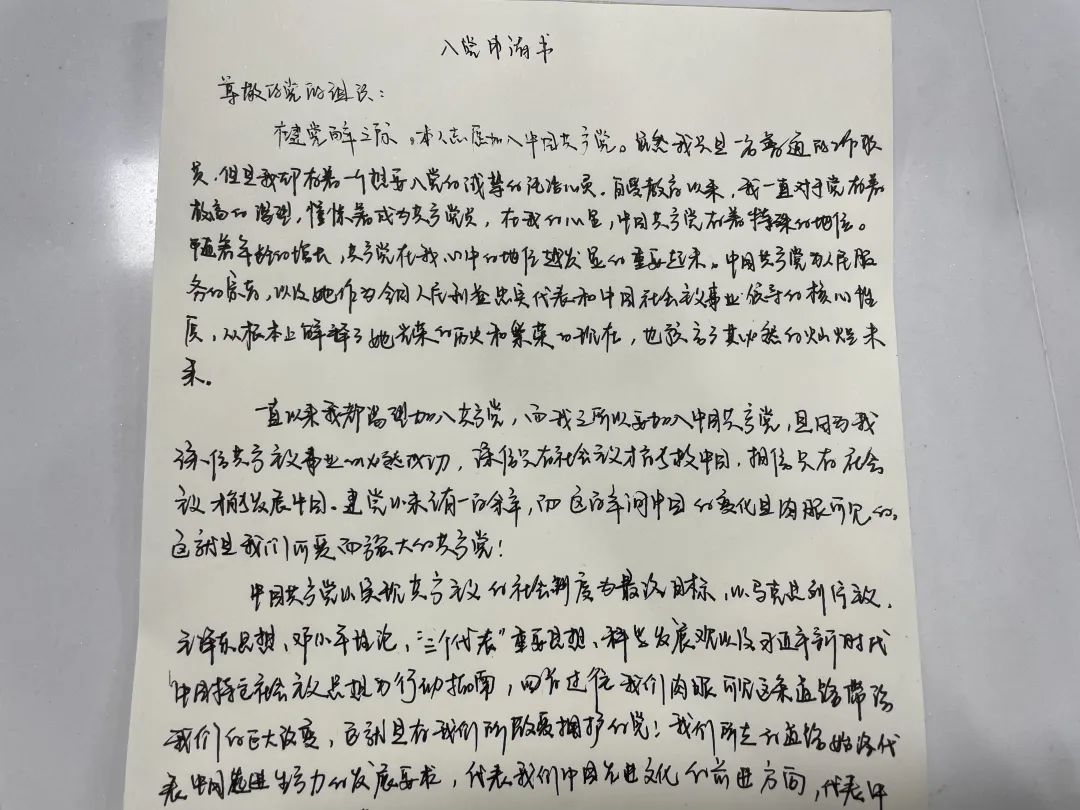 入党申请书
尊敬的党的组织：
在建党百年之际，本人志愿加入中国共产党。虽然我只是一名普通的工作职
员，但是我却有着一个想要入党的诚挚的心灵。自受教育以来，我一直对于党有着
较高的渴望，憧憬着成为共产党员，在我的心里，中国共产党有着特殊的地位。
随着年龄的增长，共产党在我心中的地位越发显的重要起来。中国共产党为人民服
务的宗旨，以及她作为全国人民利益忠实代表和中国社会主义事业领导的核心性
质，从根本上解释了她光荣的历史和繁荣的现在，也预言了其必然的灿烂未
来。
一直以来我都渴望加入共产党，而我之所以要加入中国共产党，是因为我
深信共产主义事业的必然成功，深信只有社会主义才能救中国，相信只有社会
主义才能发展中国。建党以来已有一百余年，而这百年间中国的变化是肉眼可见的。
这就是我们可爱而强大的共产党！
中国共产党以实现共产主义的社会制度为最终目标，以马克思列宁主义、
毛泽东思想、邓小平理论、“三个代表”重要思想、科学发展观以及习近平新时代
中国特色社会主义思想为行动指南，回首过往我们肉眼可见这条道路带给
我们的巨大改变，这就是我们所敬爱拥护的党！我们所走的道路始终代
表中国先进生产力的发展要求，代表我们中国先进文化的前进方向，代表中